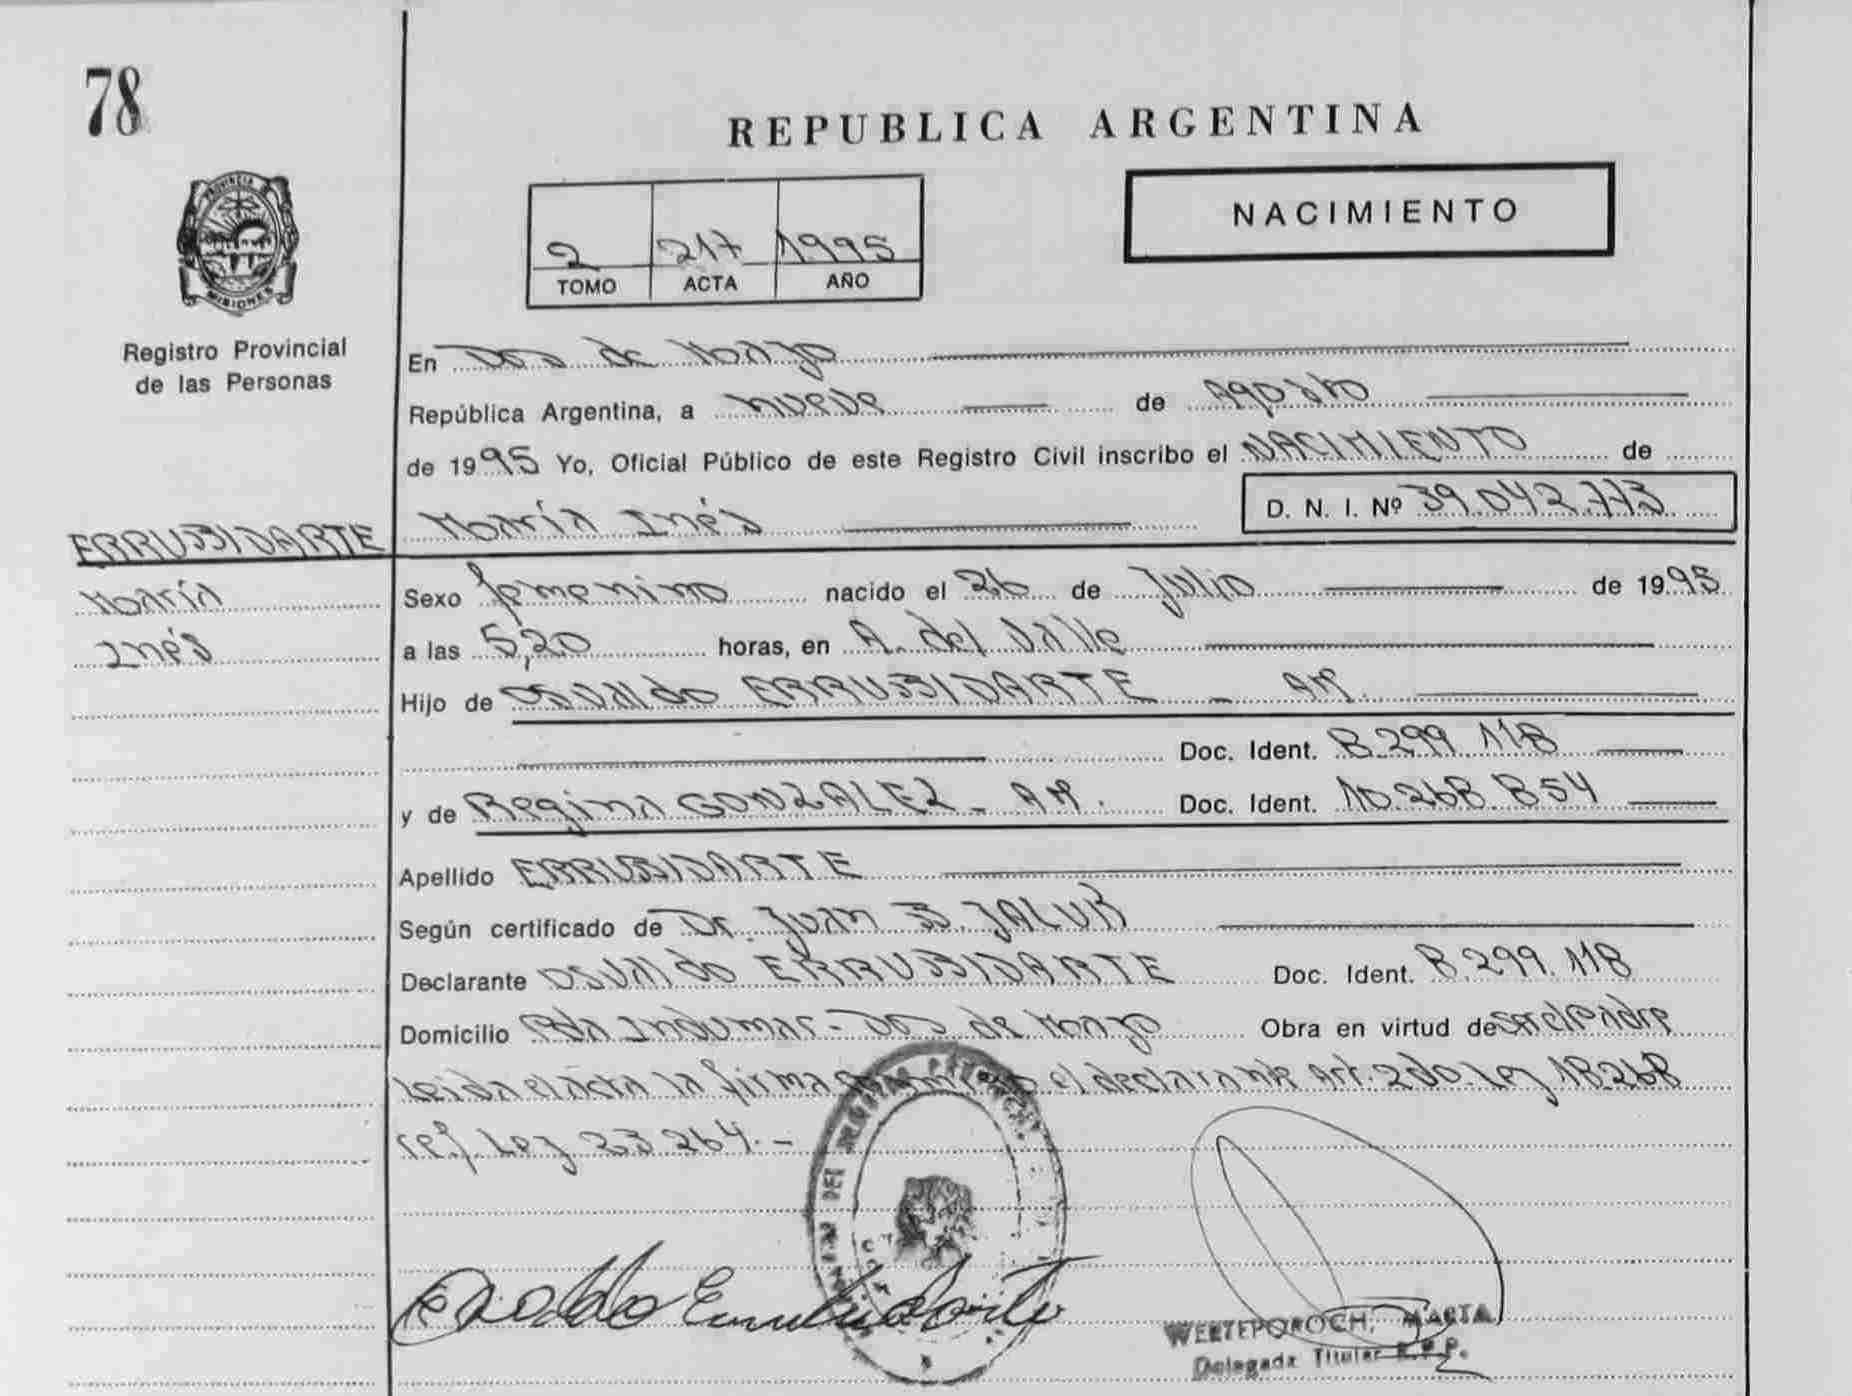 78
REPUBLICA ARGENTINA
NACIMIENTO
2 217 1995
TOMO ACTA AÑO
PROVINCIA
MISIONES
Registro Provincial
de las Personas
En Dos de Mayo
República Argentina, a nueve de Agosto
de 1995 Yo, Oficial Público de este Registro Civil inscribo el NACIMIENTO de
María Inés D. N. I. Nº 39.042.773
ERRUBIDARTE
María
Inés
Sexo femenino nacido el 26 de Julio de 1995
a las 5,20 horas, en A. del Valle
Hijo de Osvaldo ERRUBIDARTE - AR.
Doc. Ident. 8.299.118
y de Regina GONZALEZ - AR. Doc. Ident. 10.268.854
Apellido ERRUBIDARTE
Según certificado de Dr. Juan B. JALUK
Declarante Osvaldo ERRUBIDARTE Doc. Ident. 8.299.118
Domicilio Pda Indumar - Dos de Mayo Obra en virtud de ser el Padre
Leida el acta la firma el declarante Art. 2do. Ley 18.268
ref. Ley 23.264.-
WERTEPOROCH, MARTA
Delegada Titular R.P.P.